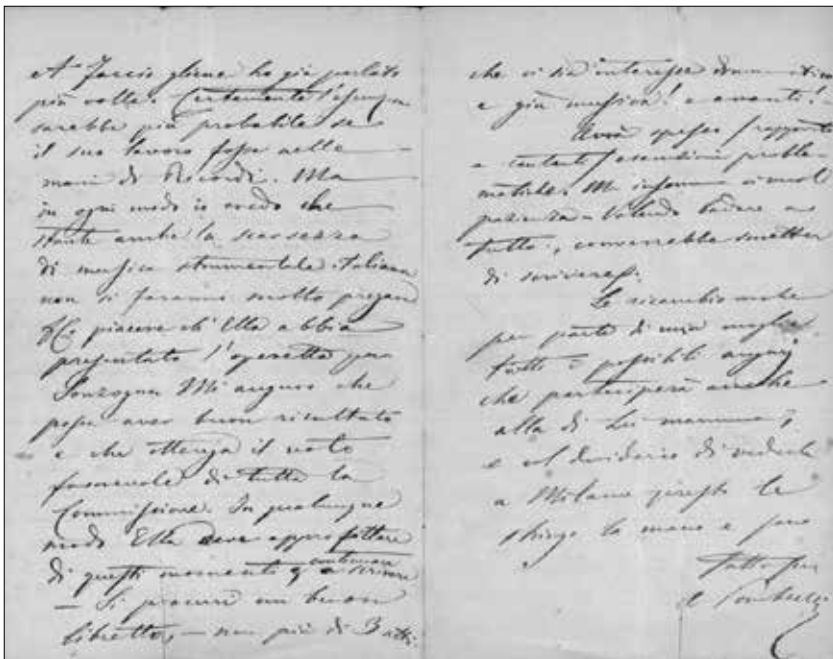 A Faccio gliene ho già parlato
più volte. Certamente l'esecuzione
sarebbe più probabile se
il suo lavoro fosse nelle
mani di Ricordi. Ma
in ogni modo io credo che
stante anche la scarsezza
di musica strumentale italiana
non si faranno molto pregare
Ho piacere ch'Ella abbia
presentato l'operetta per
Sonzogno Mi auguro che
possa aver buon risultato
e che ottenga il voto
favorevole di tutta la
Commissione. In qualunque
modo Ella deve approfittare
di questi momenti continuare a scrivere
— Si procuri un buon
libretto, — non più di 3 atti
che vi sia interesse drammatico
e giù musica! e avanti!
Avrà spesso
e cantanti esecuzioni proble-
matiche. Ma insomma ci vuol
pazienza. Volendo badare a
tutto, converrebbe smetter
di scrivere.
Le ricambio anche
per parte di mia moglie
tutti i possibili auguri
che parteciperà anche
alla di Lei mamma,
e col desiderio di vederla
a Milano presto le
stringo la mano e sono
Tutto suo
A Ponchielli